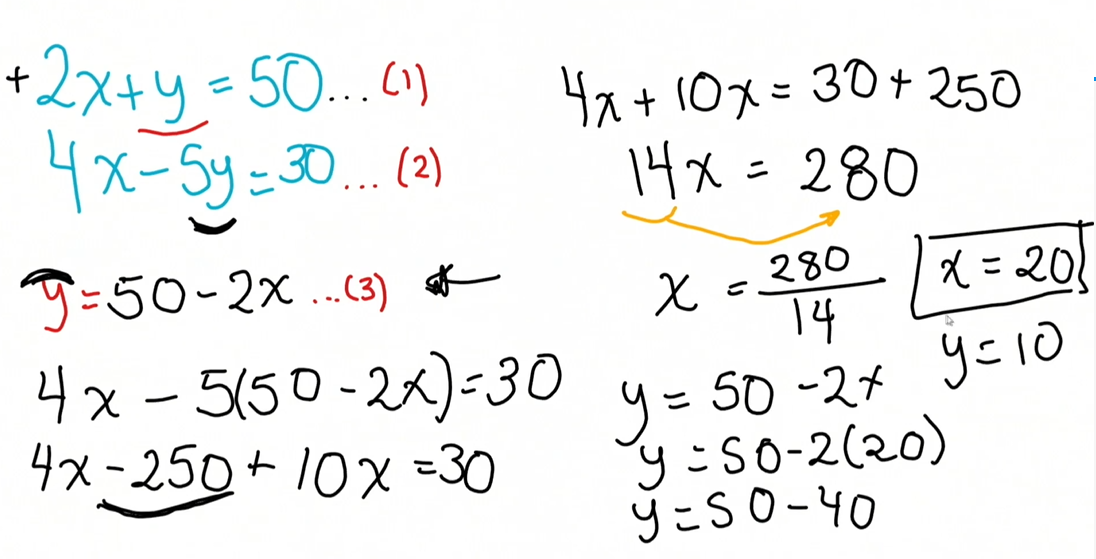 + 2x + y = 50 ... (1)
4x - 5y = 30 ... (2)
y = 50 - 2x ... (3)
4x - 5(50 - 2x) = 30
4x - 250 + 10x = 30
4x + 10x = 30 + 250
14x = 280
x = 280/14
x = 20
y = 10
y = 50 - 2x
y = 50 - 2(20)
y = 50 - 40